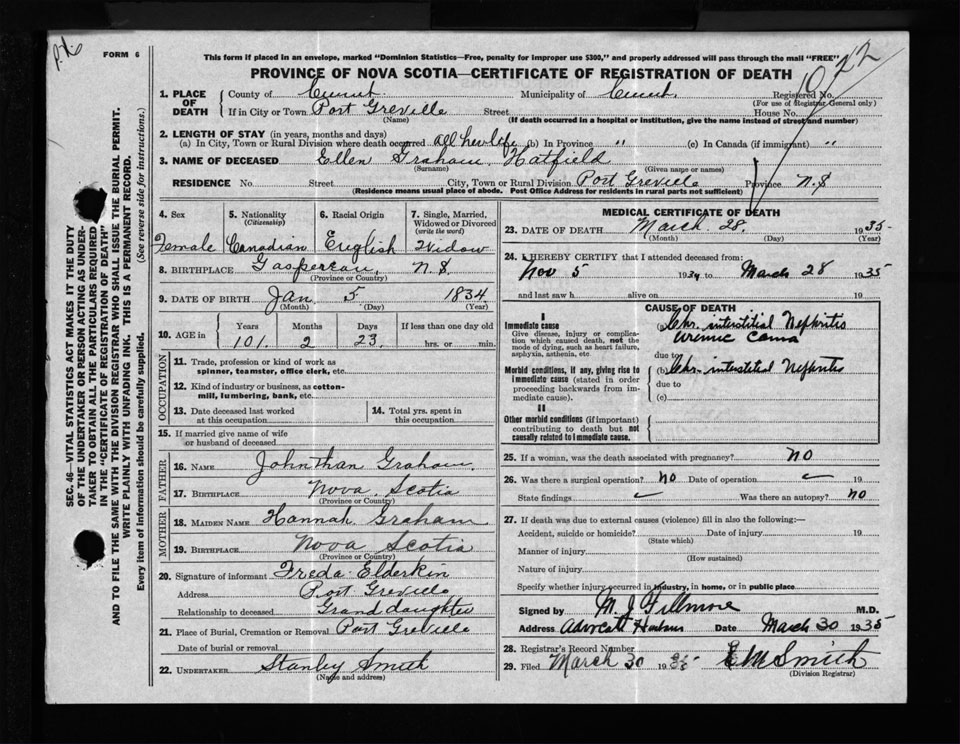 FORM 6
This form if placed in an envelope, marked "Dominion Statistics—Free, penalty for improper use $300," and properly addressed will pass through the mail "FREE"
PROVINCE OF NOVA SCOTIA—CERTIFICATE OF REGISTRATION OF DEATH
22
1. PLACE OF DEATH County of Cumb. Municipality of Cumb. Registered No.
(For use of Registrar General only)
If in City or Town Port Greville Street House No.
(Name) (If death occurred in a hospital or institution, give the name instead of street and number)
2. LENGTH OF STAY (in years, months and days)
(a) In City, Town or Rural Division where death occurred all her life (b) In Province " (c) In Canada (if immigrant) "
3. NAME OF DECEASED Ellen Graham Hatfield
(Surname) (Given name or names)
RESIDENCE No. Street City, Town or Rural Division Port Greville Province N.S
(Residence means usual place of abode. Post Office Address for residents in rural parts not sufficient)
4. Sex 5. Nationality (Citizenship) 6. Racial Origin 7. Single, Married, Widowed or Divorced (write the word)
Female Canadian English Widow
8. BIRTHPLACE Gaspereau, N.S.
(Province or Country)
9. DATE OF BIRTH Jan 5 1834
(Month) (Day) (Year)
10. AGE in Years Months Days If less than one day old
101 2 23 hrs. or min.
OCCUPATION
11. Trade, profession or kind of work as spinner, teamster, office clerk, etc.
12. Kind of industry or business, as cotton-mill, lumbering, bank, etc.
13. Date deceased last worked at this occupation 14. Total yrs. spent in this occupation
15. If married give name of wife or husband of deceased
FATHER
16. NAME Johnthan Graham
17. BIRTHPLACE Nova Scotia
(Province or Country)
MOTHER
18. MAIDEN NAME Hannah Graham
19. BIRTHPLACE Nova Scotia
(Province or Country)
20. Signature of informant Freda Elderkin
Address Port Greville
Relationship to deceased Grand daughter
21. Place of Burial, Cremation or Removal Port Greville
Date of burial or removal
22. UNDERTAKER Stanley Smith
(Name and address)
MEDICAL CERTIFICATE OF DEATH
23. DATE OF DEATH March 28, 1935
(Month) (Day) (Year)
24. I HEREBY CERTIFY that I attended deceased from:
Nov 5 1934 to March 28 1935
and last saw h alive on 19
CAUSE OF DEATH
I
Immediate cause (a) Chr. interstitial Nephritis
Give disease, injury or complication which caused death, not the mode of dying, such as heart failure, asphyxia, asthenia, etc
uremic coma
due to
Morbid conditions, if any, giving rise to immediate cause (stated in order proceeding backwards from immediate cause). (b) Chr. interstitial Nephritis
due to
(c)
II
Other morbid conditions (if important) contributing to death but not causally related to immediate cause.
25. If a woman, was the death associated with pregnancy? NO
26. Was there a surgical operation? NO Date of operation 19
State findings Was there an autopsy? NO
27. If death was due to external causes (violence) fill in also the following:—
Accident, suicide or homicide? Date of injury 19
(State which)
Manner of injury
(How sustained)
Nature of injury
Specify whether injury occurred in industry, in home, or in public place
Signed by M. J Fillmore M.D.
Address Advocate Harbour Date March 30 1935
28. Registrar's Record Number
29. Filed March 30 1935 E M Smith
(Division Registrar)
SEC. 46—VITAL STATISTICS ACT MAKES IT THE DUTY
OF THE UNDERTAKER OR PERSON ACTING AS UNDER-
TAKER TO OBTAIN ALL THE PARTICULARS REQUIRED
IN THE "CERTIFICATE OF REGISTRATION OF DEATH"
AND TO FILE THE SAME WITH THE DIVISION REGISTRAR WHO SHALL ISSUE THE BURIAL PERMIT.
WRITE PLAINLY WITH UNFADING INK. THIS IS A PERMANENT RECORD.
Every item of information should be carefully supplied. (See reverse side for instructions.)